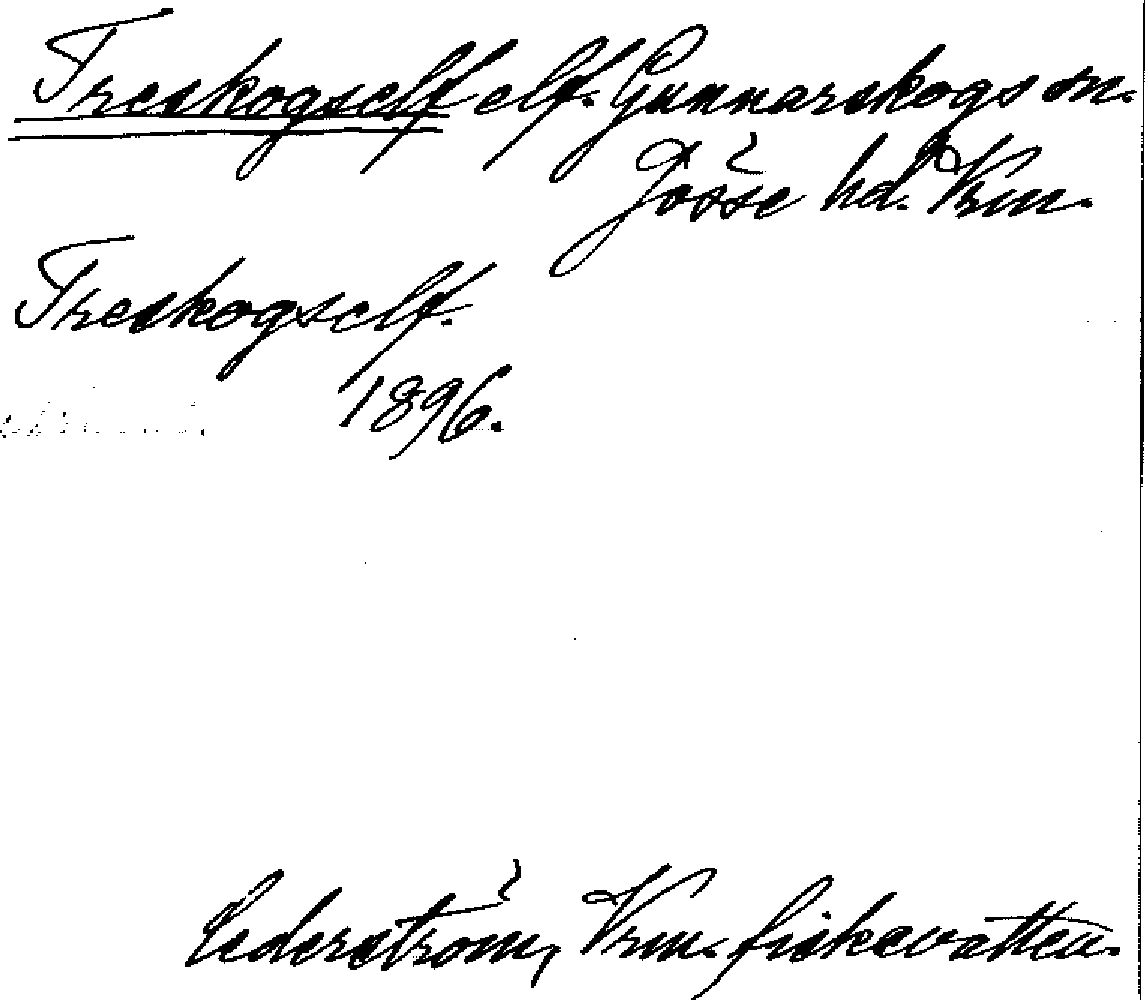 Treskogself elf. Gunnarskogs sn.
Jösse hd. Vrm.
Treskogself.
1896.
Cederström, Vrm. fiskevatten.